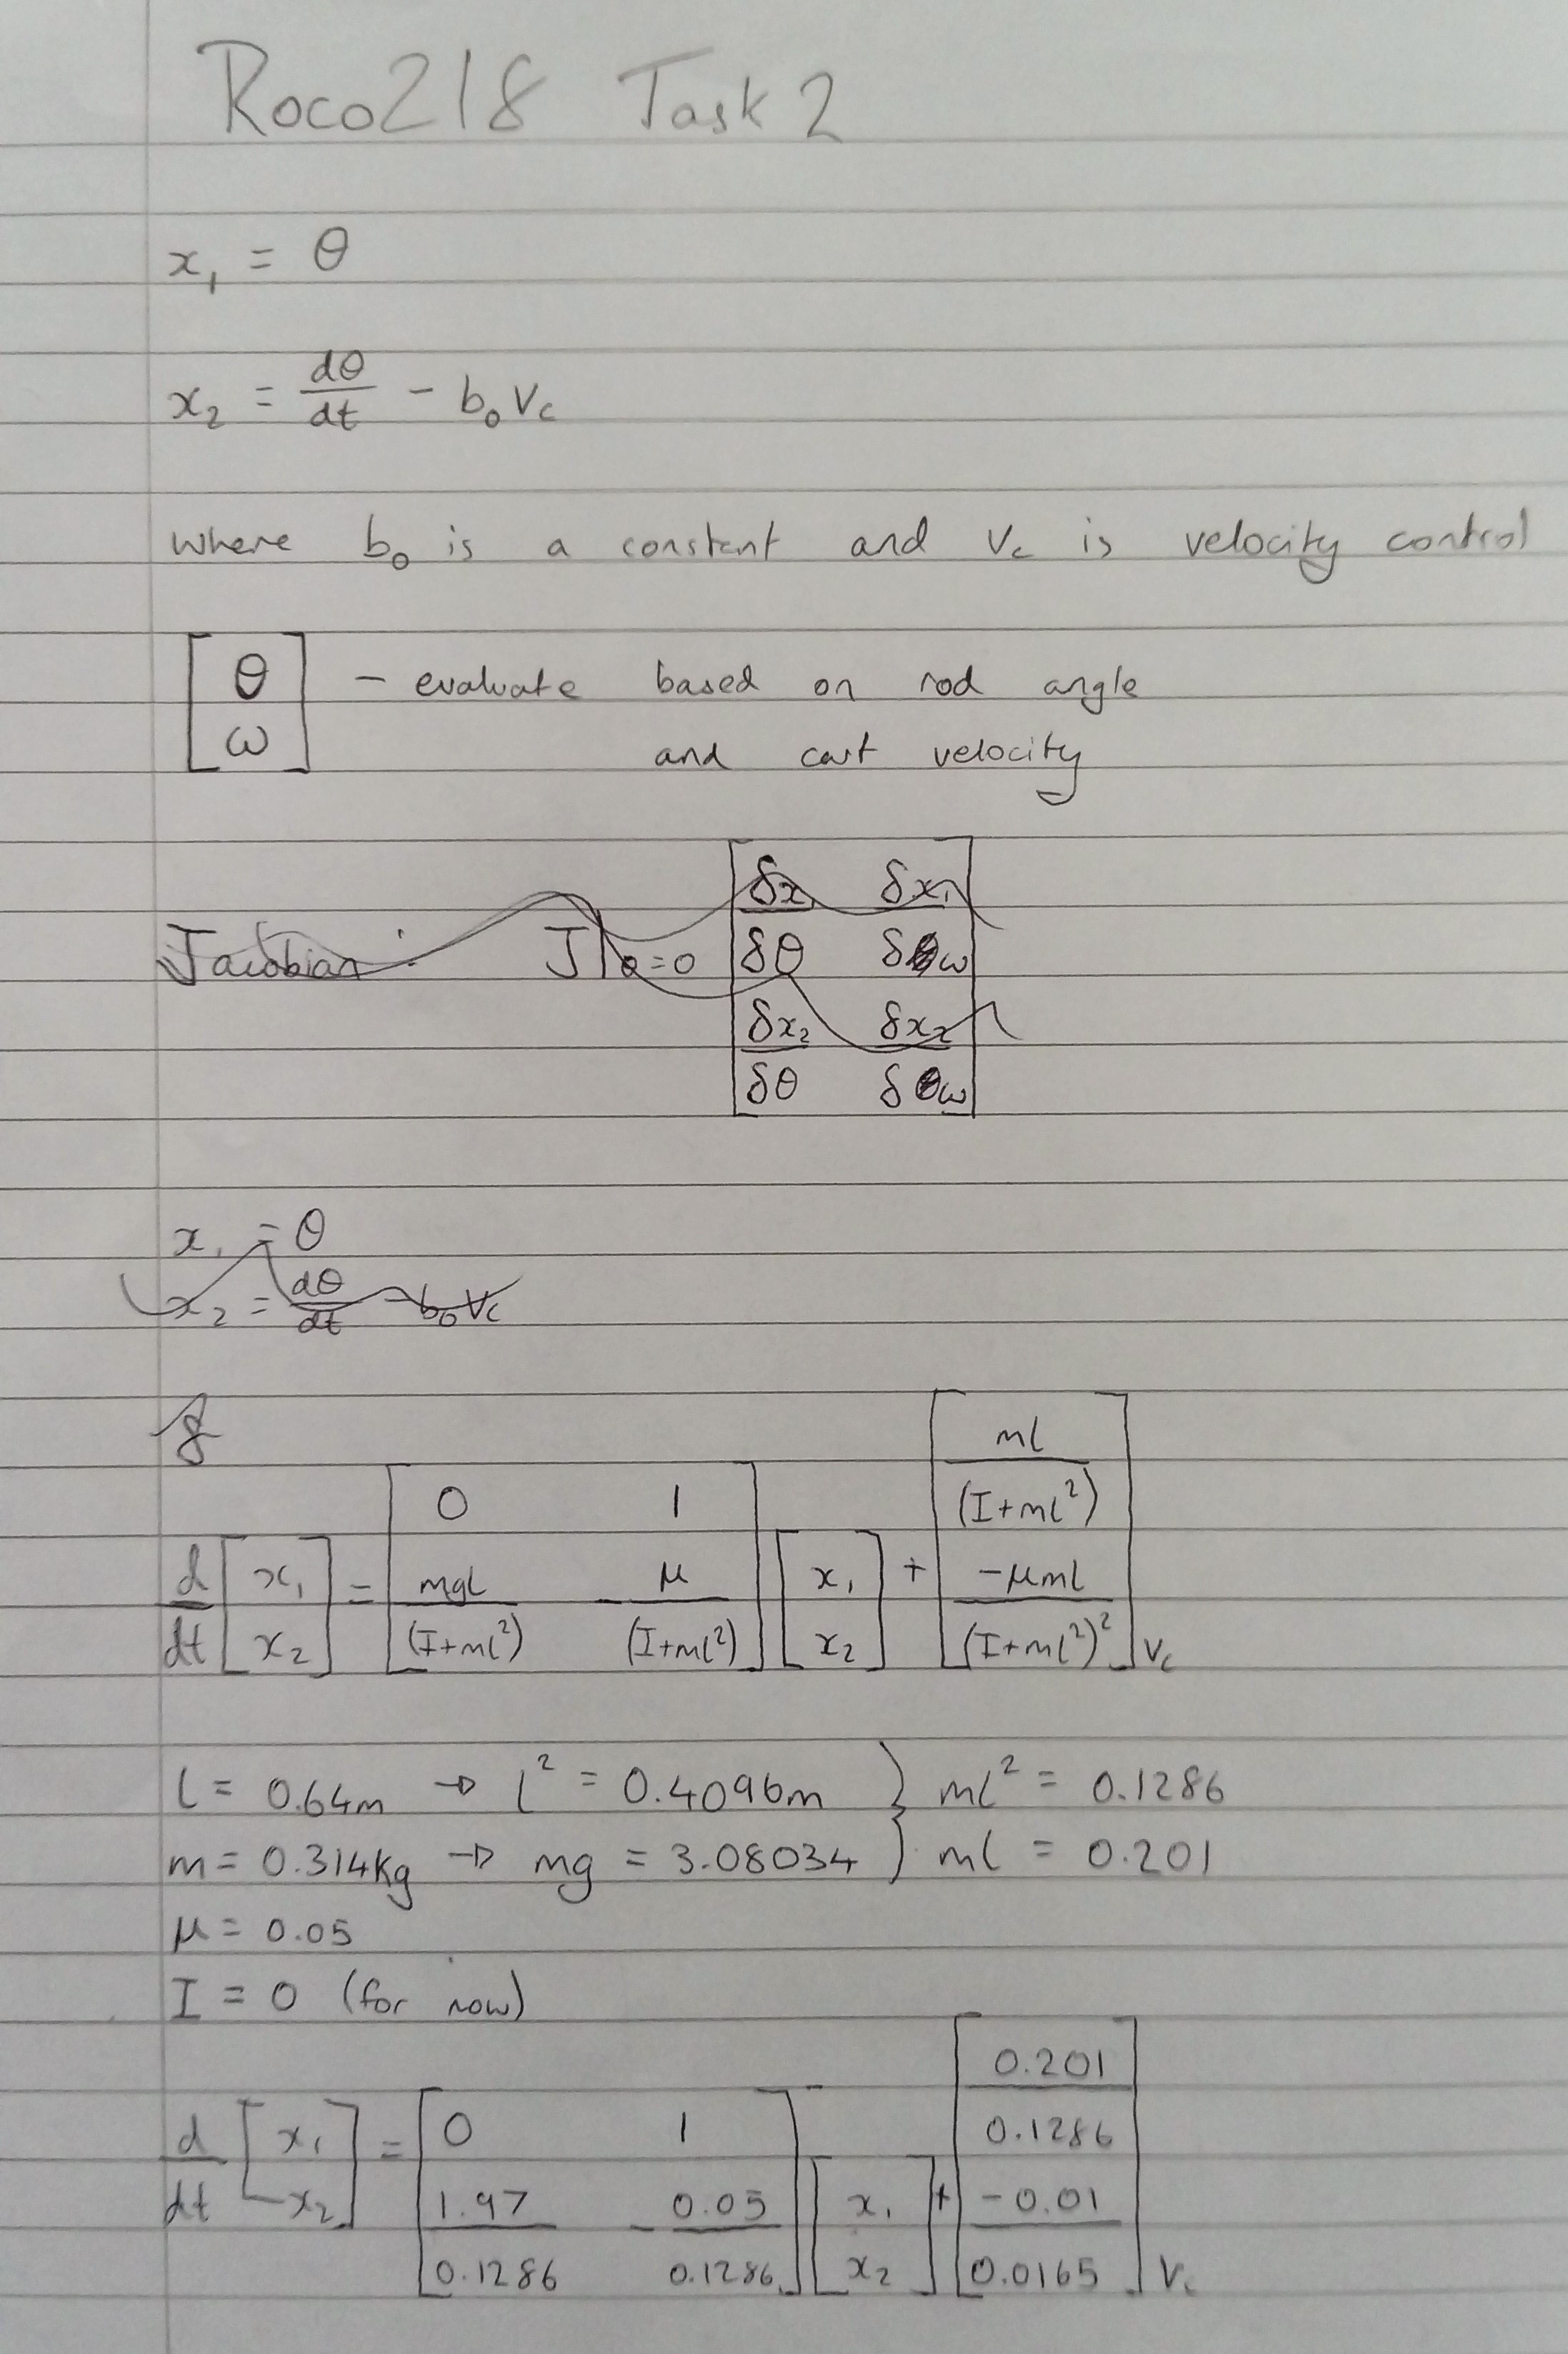 Roco218 Task 2
x₁ = θ
x₂ = dθ/dt - b₀ Vc
where b₀ is a constant and Vc is velocity control
[θ ω] - evaluate based on rod angle
and cart velocity
Jacobian: J|θ=0 [δx₁/δθ δx₁/δω; δx₂/δθ δx₂/δω]
x₁ = θ
x₂ = dθ/dt - b₀ Vc
d/dt [x₁; x₂] = [0 1; mgl/(I+ml²) -μ/(I+ml²)] [x₁; x₂] + [ml/(I+ml²); -μml/(I+ml²)²] Vc
l = 0.64m → l² = 0.4096m } ml² = 0.1286
m = 0.314kg → mg = 3.08034 } ml = 0.201
μ = 0.05
I = 0 (for now)
d/dt [x₁; x₂] = [0 1; 1.97/0.1286 -0.05/0.1286] [x₁; x₂] + [0.201/0.1286; -0.01/0.0165] Vc